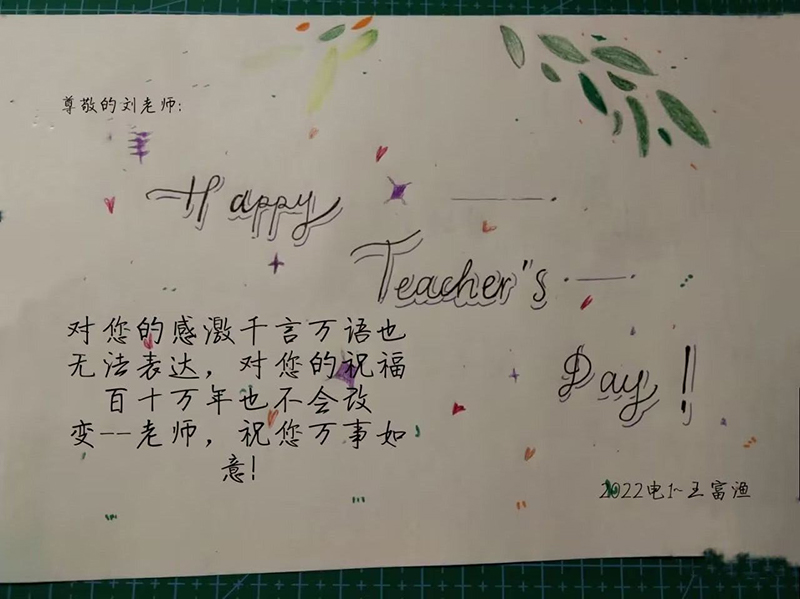 尊敬的刘老师:
Happy
Teacher"s
Day!
对您的感激千言万语也
无法表达，对您的祝福
百十万年也不会改
变--老师，祝您万事如
意!
2022电1~王富渔